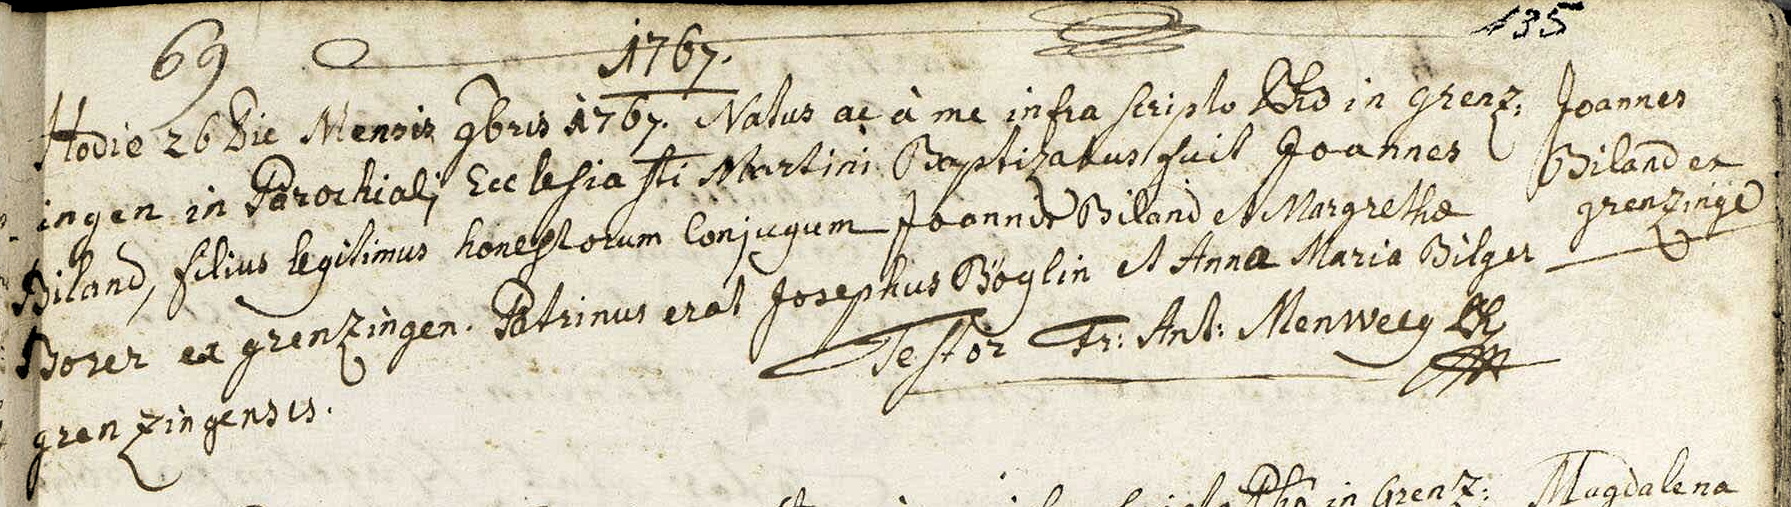 69
1767.
135
Hodie 26 Die Mensis 9bris 1767. Natus ac à me infra scripto in grenz:
ingen in Parochiali Ecclesia sti Martini Baptizatus fuit Joannes
Biland, filius legitimus honestorum Conjugum Joannis Biland et Margretha
Borer ex grenzingen. Patrinus erat Josephus Böglin et Anna Maria Bilger
grenzingensis.
Testor Fr: Ant: Menweeg
Joannes
Biland ex
grenzinge
in Grenz:
Magdalena